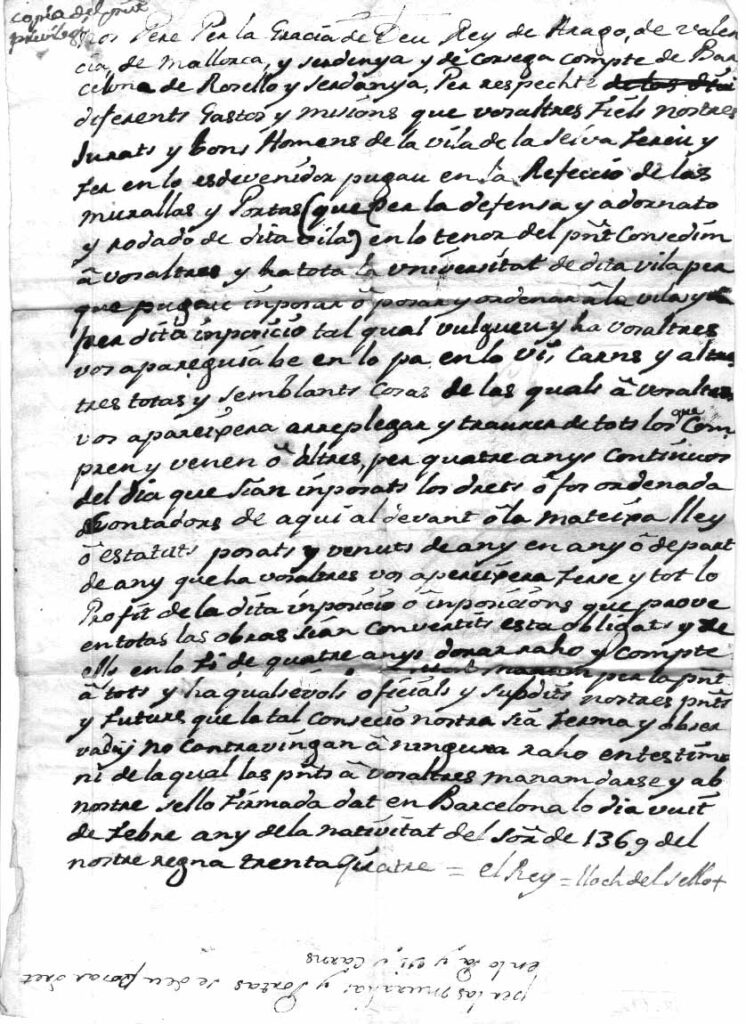 copia del pñt
privilegi
Nos Pere Per la Gracia de Deu Rey de Arago, de Valen
cia, de Mallorca, y serdenya y de corsega compte de Bar
celona de Rosello y serdanya, Per respecte de las ditas
diferents Gastos y misions que vosaltres Fiels nostres
Jurats y bons Homens de la vila de la selva Fereu y
Fer en lo esdevenidor pugau en la Refeccio de las
murallas y Portas (que per la defensa y adornato
y rodado de dita vila) en lo tenor del pñt Consedim
â vosaltres y ha tota la Vniversitat de dita vila per
que pugau inposar ô posar y ordenar â la vila y
per dita inposicio tal qual vulgueu y ha vosaltres
vos apareguia be en lo pa, en lo vi, Carns y altres
tres totas y semblants Cosas de las quals â vosaltres
vos apareixera arreplegar y traurer de tots los que Com
pren y venen ô altres, per quatre anys Continuos
del dia que sian inposats los drets ô fos ordenada
Contadors de aqui al devant ô la mateixa lley
ô estatuts posats y venuts de any en any ô de part
de any que ha vosaltres vos apereixera Ferse y tot lo
Profit de la dita inposicio ô inposicions que prove
en totas las obras sian Convertits esta obligats y de
ells en lo fi de quatre anys donar raho y Compte
manam per la pñt
â tots y ha qualsevols oficials y subdits nostres pñts
y Futurs que la tal Consecio nostra sia Ferma y obser
vada y no Contravingan â ninguna raho en testimo
ni de la qual las pñts â vosaltres manam darse y ab
nostre sello Firmada dat en Barcelona lo dia vuit
de Febre any de la nativitat del Sor de 1369 del
nostre regna trenta quatre = el Rey = lloch del sello +
per las murallas y Portas se deu posar dret
en lo Pa y vi, y Carns